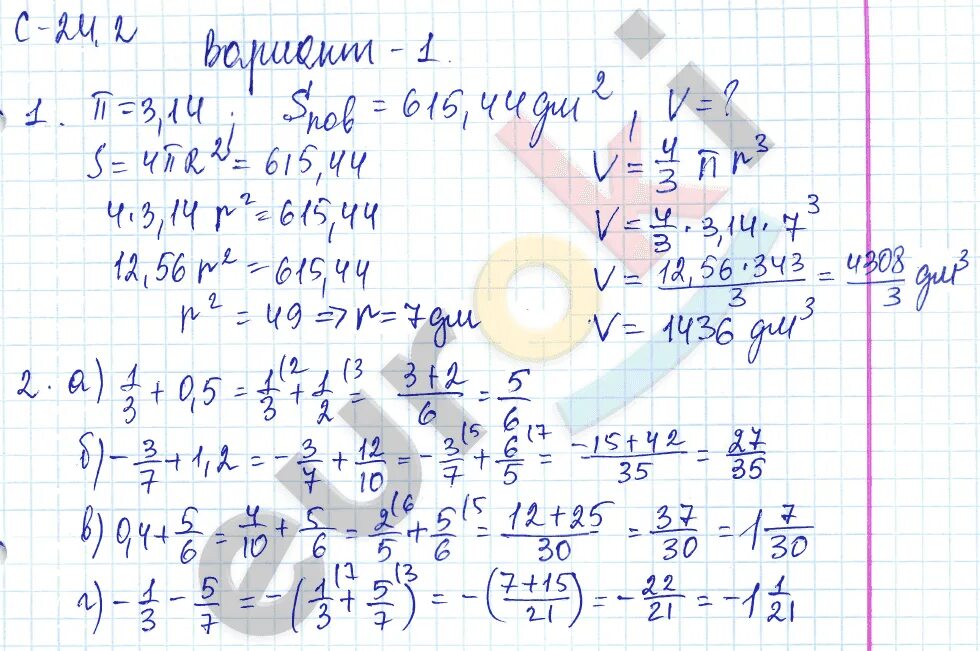 С-24,2
Вариант - 1.
1. π = 3,14 ; Sпов = 615,44 дм², V = ?
S = 4πR² = 615,44
4·3,14 r² = 615,44
12,56 r² = 615,44
r² = 49 => r = 7 дм
V = 4/3 π r³
V = 4/3 · 3,14 · 7³
V = 12,56·343/3 = 4308/3 дм³
V = 1436 дм³
2. а) 1/3 + 0,5 = 1/3(2 + 1/2(3 = 3+2/6 = 5/6
б) -3/7 + 1,2 = -3/7 + 12/10 = -3/7(5 + 6/5(7 = -15+42/35 = 27/35
в) 0,4 + 5/6 = 4/10 + 5/6 = 2/5(6 + 5/6(5 = 12+25/30 = 37/30 = 1 7/30
г) -1/3 - 5/7 = -(1/3(7 + 5/7(3) = -(7+15/21) = -22/21 = -1 1/21
euroki